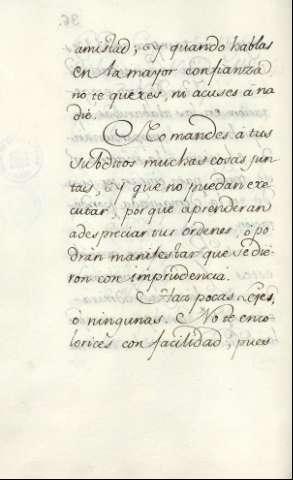 36.
amistad; y quando hablas
en la mayor confianza
no te quexes, ni acuses á na
die.
No mandes a tus
subditos muchas cosas jun
tas, y que no puedan exe
cutar, porque aprenderan
a despreciar tus ordenes, ó po
dran manifestar que se die
ron con imprudencia.
Haz pocas Leyes,
ó ningunas. No te enco
lorices con facilidad, pues